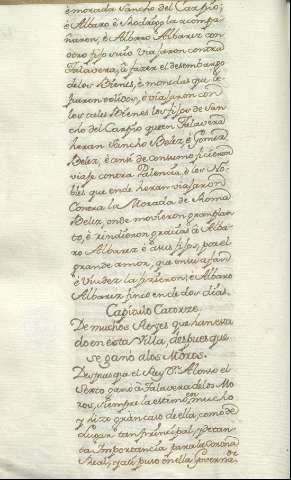 emorada Sancho del Carpio;
è Albaro è Rodrigo la acompa-
ñaron, è Albaro Albarez con
otro fijo suio viajaron contra
Talavera, à fazer el desembargo
delos Bienes, è monedas que
fueron vendidos, è viajaron con
los tales Bienes los fijos de San-
cho del Carpio que en Talavera
heran Sancho Belez, è Gomez
Belez, è amb de consumo ficieron
viaje contra Palencia, è los No-
bles que ende heran viajaron
Contra la Morada de Roma
Belez, onde movieron gran plan-
to, è rindieron gracias à Alba-
ro Albarez è à sus fijos, por el
grande amor, que en su afan
è Viudez la ficieron, è Albaro
Albarez finco ende dos dias.
Capitulo Catorze.
De muchos Reyes que han esta-
do en esta Villa, despues que
se ganó alos Moros.
Despues que el Rey Dn. Alonso el
Sexto ganó à Talavera delos Mo-
ros, siempre la estimaron mucho
y hizo gran caso de ella, como de
Lugar tan principal, y de tan-
ta Importancia para la Corona
Real, y asi puso en ella Governador